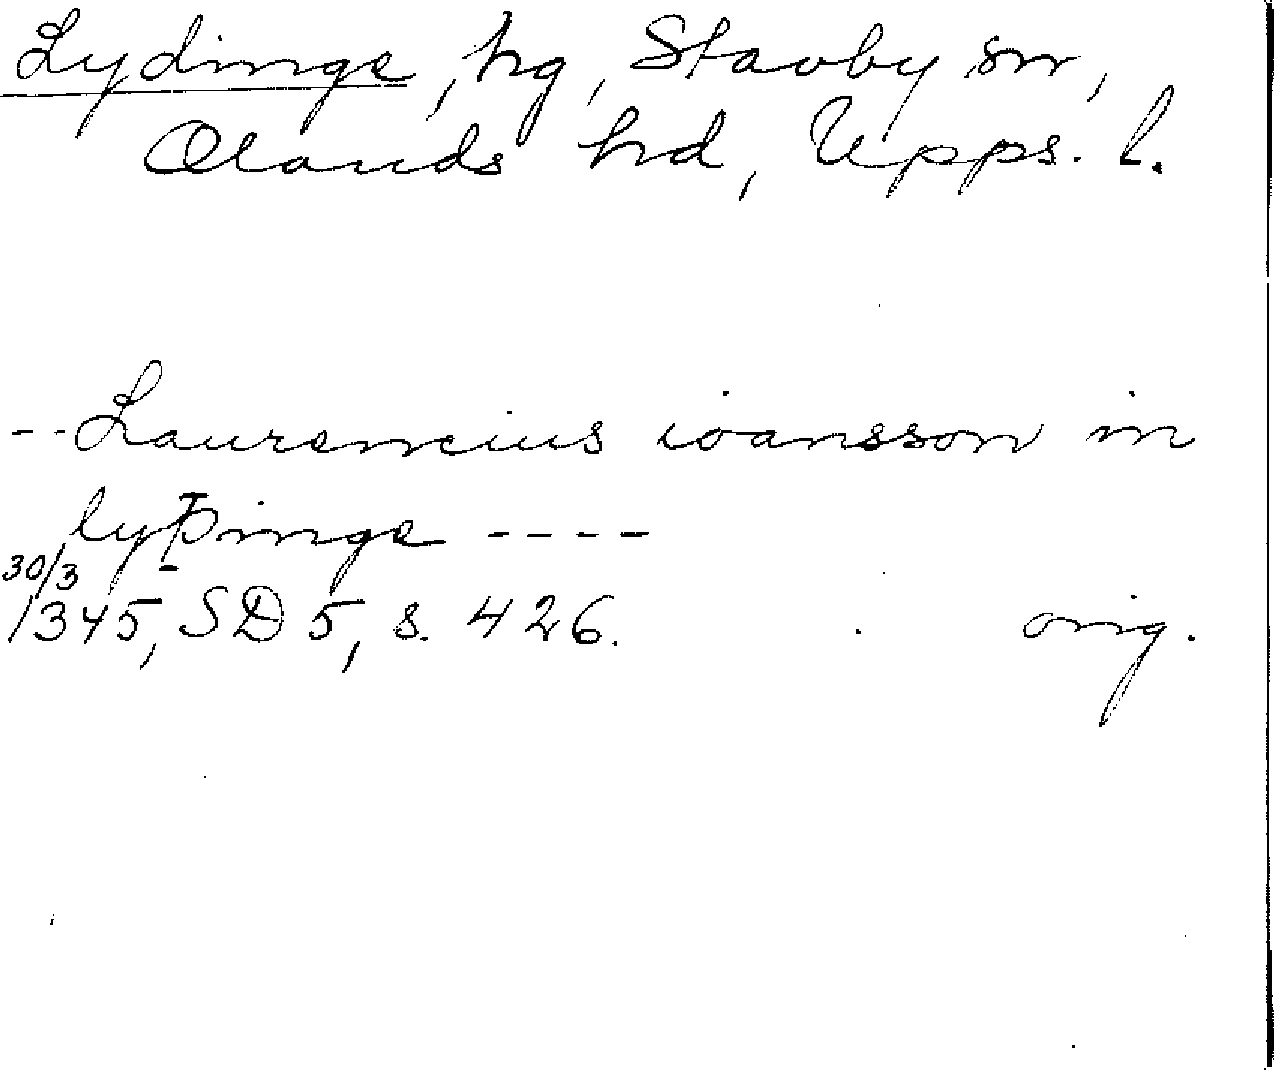 Lydinge, hg, Stavby sn,
Olands hd, Upps. l.
-- Laurencius ioansson in
lyþinge ----
30/3
1345, SD 5, s. 426. orig.